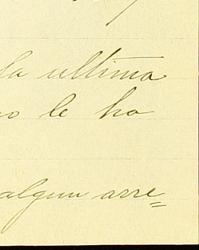 la ultima
no le ha
algun arre=